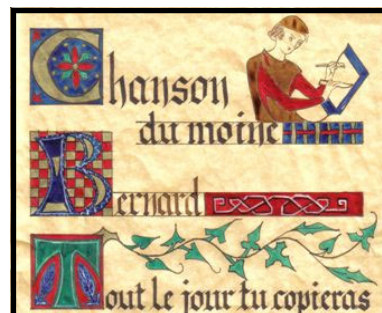 Chanson
du moine
Bernard
Tout le jour tu copieras